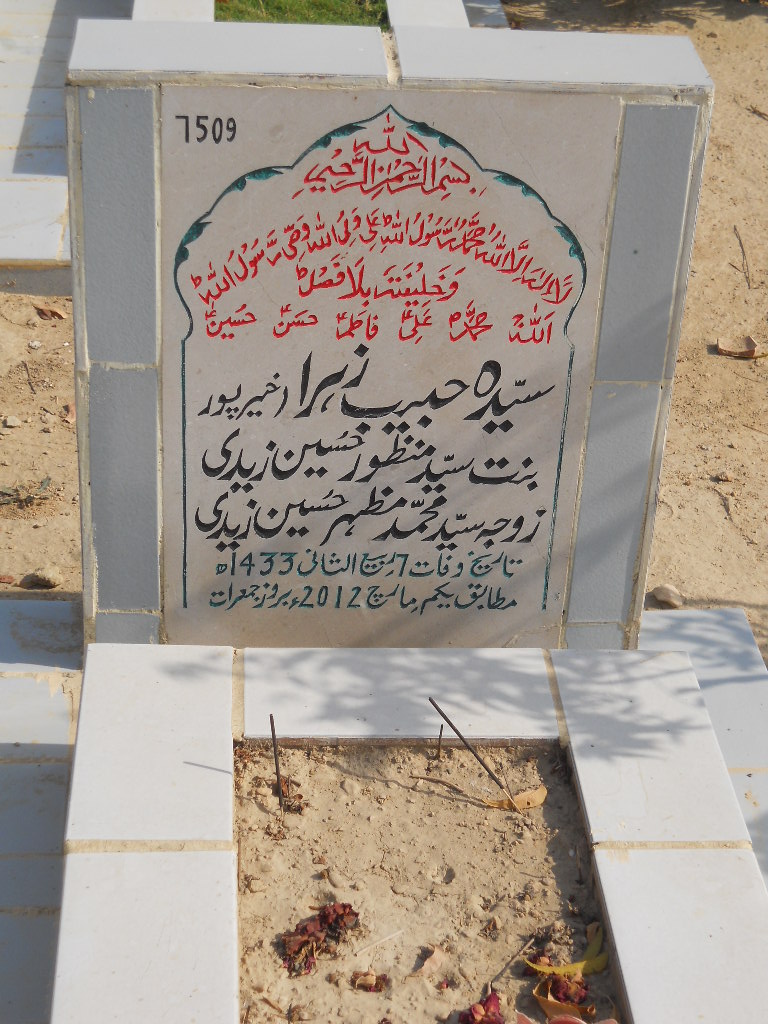 7509
اللہ
بِسْمِ الرَّحْمٰنِ الرَّحِيْمِ
لَا اِلٰهَ اِلَّا اللهُ مُحَمَّدٌ رَّسُوْلُ اللهِ عَلِیٌّ وَلِیُّ اللهِ وَصِیُّ رَسُوْلِ اللهِ
وَ خَلِيْفَتَهٗ بِلَا فَصْلٍ
اَللهُ محمدؐ عَلیؑ فاطمہؑ حسنؑ حسینؑ
سیّدہ حبیب زہرا (خیرپور
بنت سیّد منظور حُسین زیدی
زوجہ سیّد محمّد مظہر حُسین زیدی
تاریخ وفات 7 ربیع الثانی 1433ھ
مطابق یکم مارچ 2012ء بروز جمعرات